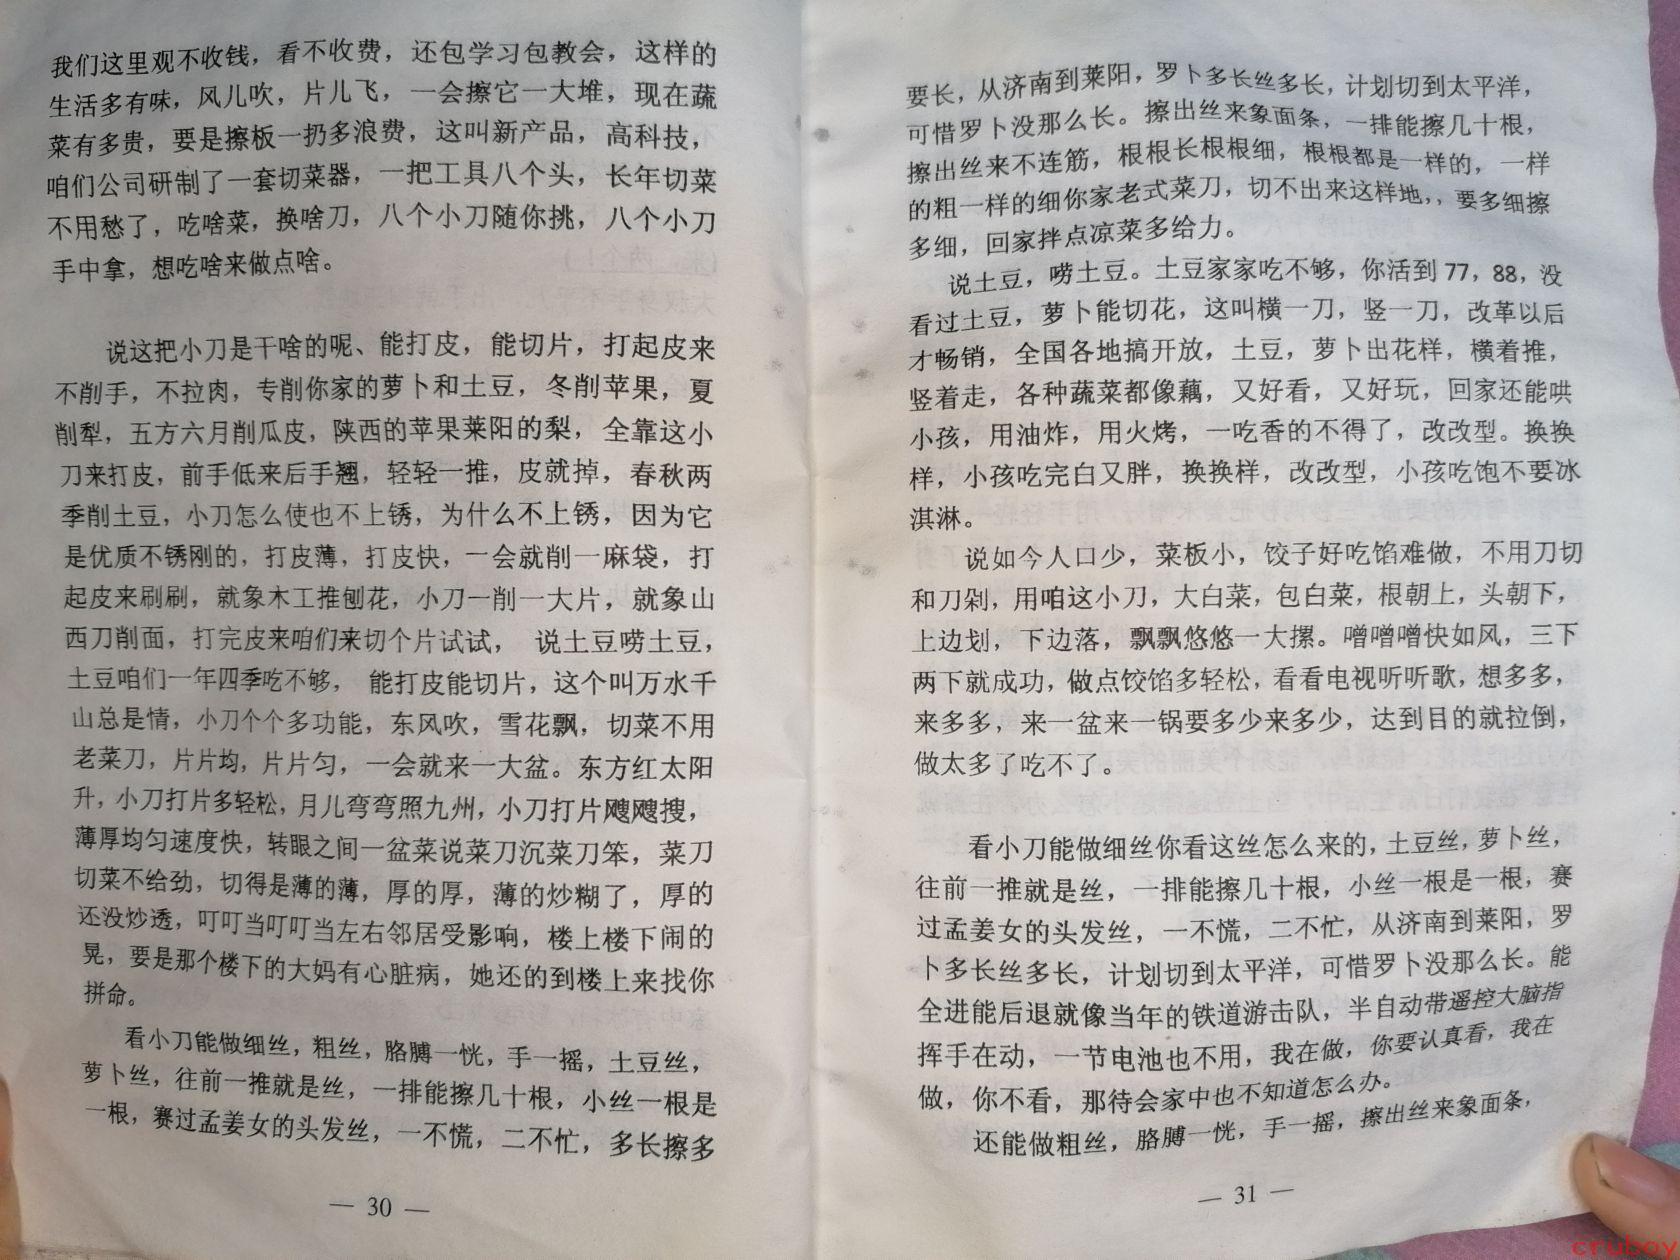 我们这里观不收钱，看不收费，还包学习包教会，这样的
生活多有味，风儿吹，片儿飞，一会擦它一大堆，现在蔬
菜有多贵，要是擦板一扔多浪费，这叫新产品，高科技，
咱们公司研制了一套切菜器，一把工具八个头，长年切菜
不用愁了，吃啥菜，换啥刀，八个小刀随你挑，八个小刀
手中拿，想吃啥来做点啥。
说这把小刀是干啥的呢、能打皮，能切片，打起皮来
不削手，不拉肉，专削你家的萝卜和土豆，冬削苹果，夏
削犁，五方六月削瓜皮，陕西的苹果莱阳的梨，全靠这小
刀来打皮，前手低来后手翘，轻轻一推，皮就掉，春秋两
季削土豆，小刀怎么使也不上锈，为什么不上锈，因为它
是优质不锈刚的，打皮薄，打皮快，一会就削一麻袋，打
起皮来刷刷，就象木工推刨花，小刀一削一大片，就象山
西刀削面，打完皮来咱们来切个片试试， 说土豆唠土豆，
土豆咱们一年四季吃不够， 能打皮能切片，这个叫万水千
山总是情，小刀个个多功能，东风吹，雪花飘，切菜不用
老菜刀，片片均，片片匀，一会就来一大盆。东方红太阳
升，小刀打片多轻松，月儿弯弯照九州，小刀打片飕飕搜，
薄厚均匀速度快，转眼之间一盆菜说菜刀沉菜刀笨，菜刀
切菜不给劲，切得是薄的薄，厚的厚，薄的炒糊了，厚的
还没炒透，叮叮当叮叮当左右邻居受影响，楼上楼下闹的
晃，要是那个楼下的大妈有心脏病，她还的到楼上来找你
拼命。
看小刀能做细丝，粗丝，胳膊一恍，手一摇，土豆丝，
萝卜丝，往前一推就是丝，一排能擦几十根，小丝一根是
一根，赛过孟姜女的头发丝，一不慌，二不忙，多长擦多
— 30 —
要长，从济南到莱阳，罗卜多长丝多长，计划切到太平洋，
可惜罗卜没那么长。擦出丝来象面条，一排能擦几十根，
擦出丝来不连筋，根根长根根细，根根都是一样的，一样
的粗一样的细你家老式菜刀，切不出来这样地，，要多细擦
多细，回家拌点凉菜多给力。
说土豆，唠土豆。土豆家家吃不够，你活到 77，88，没
看过土豆，萝卜能切花，这叫横一刀，竖一刀，改革以后
才畅销，全国各地搞开放，土豆，萝卜出花样，横着推，
竖着走，各种蔬菜都像藕，又好看，又好玩，回家还能哄
小孩，用油炸，用火烤，一吃香的不得了，改改型。换换
样，小孩吃完白又胖，换换样，改改型，小孩吃饱不要冰
淇淋。
说如今人口少，菜板小，饺子好吃馅难做，不用刀切
和刀剁，用咱这小刀，大白菜，包白菜，根朝上，头朝下，
上边划，下边落，飘飘悠悠一大摞。噌噌噌快如风，三下
两下就成功，做点饺馅多轻松，看看电视听听歌，想多多，
来多多，来一盆来一锅要多少来多少，达到目的就拉倒，
做太多了吃不了。
看小刀能做细丝你看这丝怎么来的，土豆丝，萝卜丝，
往前一推就是丝，一排能擦几十根，小丝一根是一根，赛
过孟姜女的头发丝，一不慌，二不忙，从济南到莱阳，罗
卜多长丝多长，计划切到太平洋，可惜罗卜没那么长。能
全进能后退就像当年的铁道游击队，半自动带遥控大脑指
挥手在动，一节电池也不用，我在做，你要认真看，我在
做，你不看，那待会家中也不知道怎么办。
还能做粗丝，胳膊一恍，手一摇，擦出丝来象面条，
— 31 —
cruboy